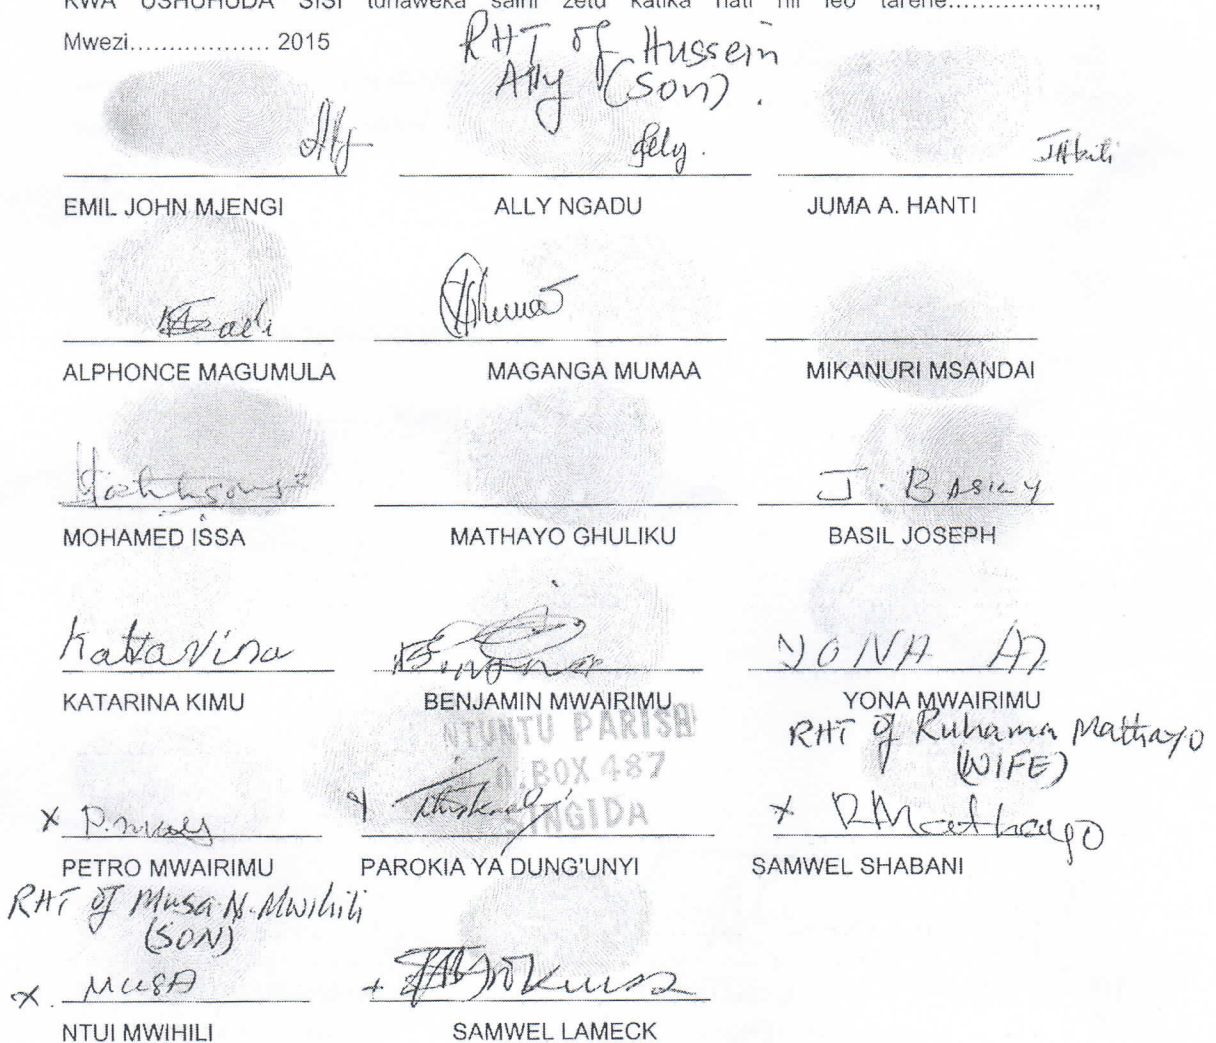 KWA USHUHUDA SISI tunaweka sahihi zetu katika hati hii leo tarehe..................,
Mwezi.................. 2015
RHT of Hussein
Ally (Son).
EMIL JOHN MJENGI ALLY NGADU JUMA A. HANTI
ALPHONCE MAGUMULA MAGANGA MUMAA MIKANURI MSANDAI
J. Basily
MOHAMED ISSA MATHAYO GHULIKU BASIL JOSEPH
Katarina YONA
KATARINA KIMU BENJAMIN MWAIRIMU YONA MWAIRIMU
NTUNTU PARISH
BOX 487
SINGIDA
RHT of Ruhama Mathayo
(WIFE)
X X RMathayo
PETRO MWAIRIMU PAROKIA YA DUNG'UNYI SAMWEL SHABANI
RHT of Musa N. Mwihili
(SON)
X. MUSA
NTUI MWIHILI SAMWEL LAMECK